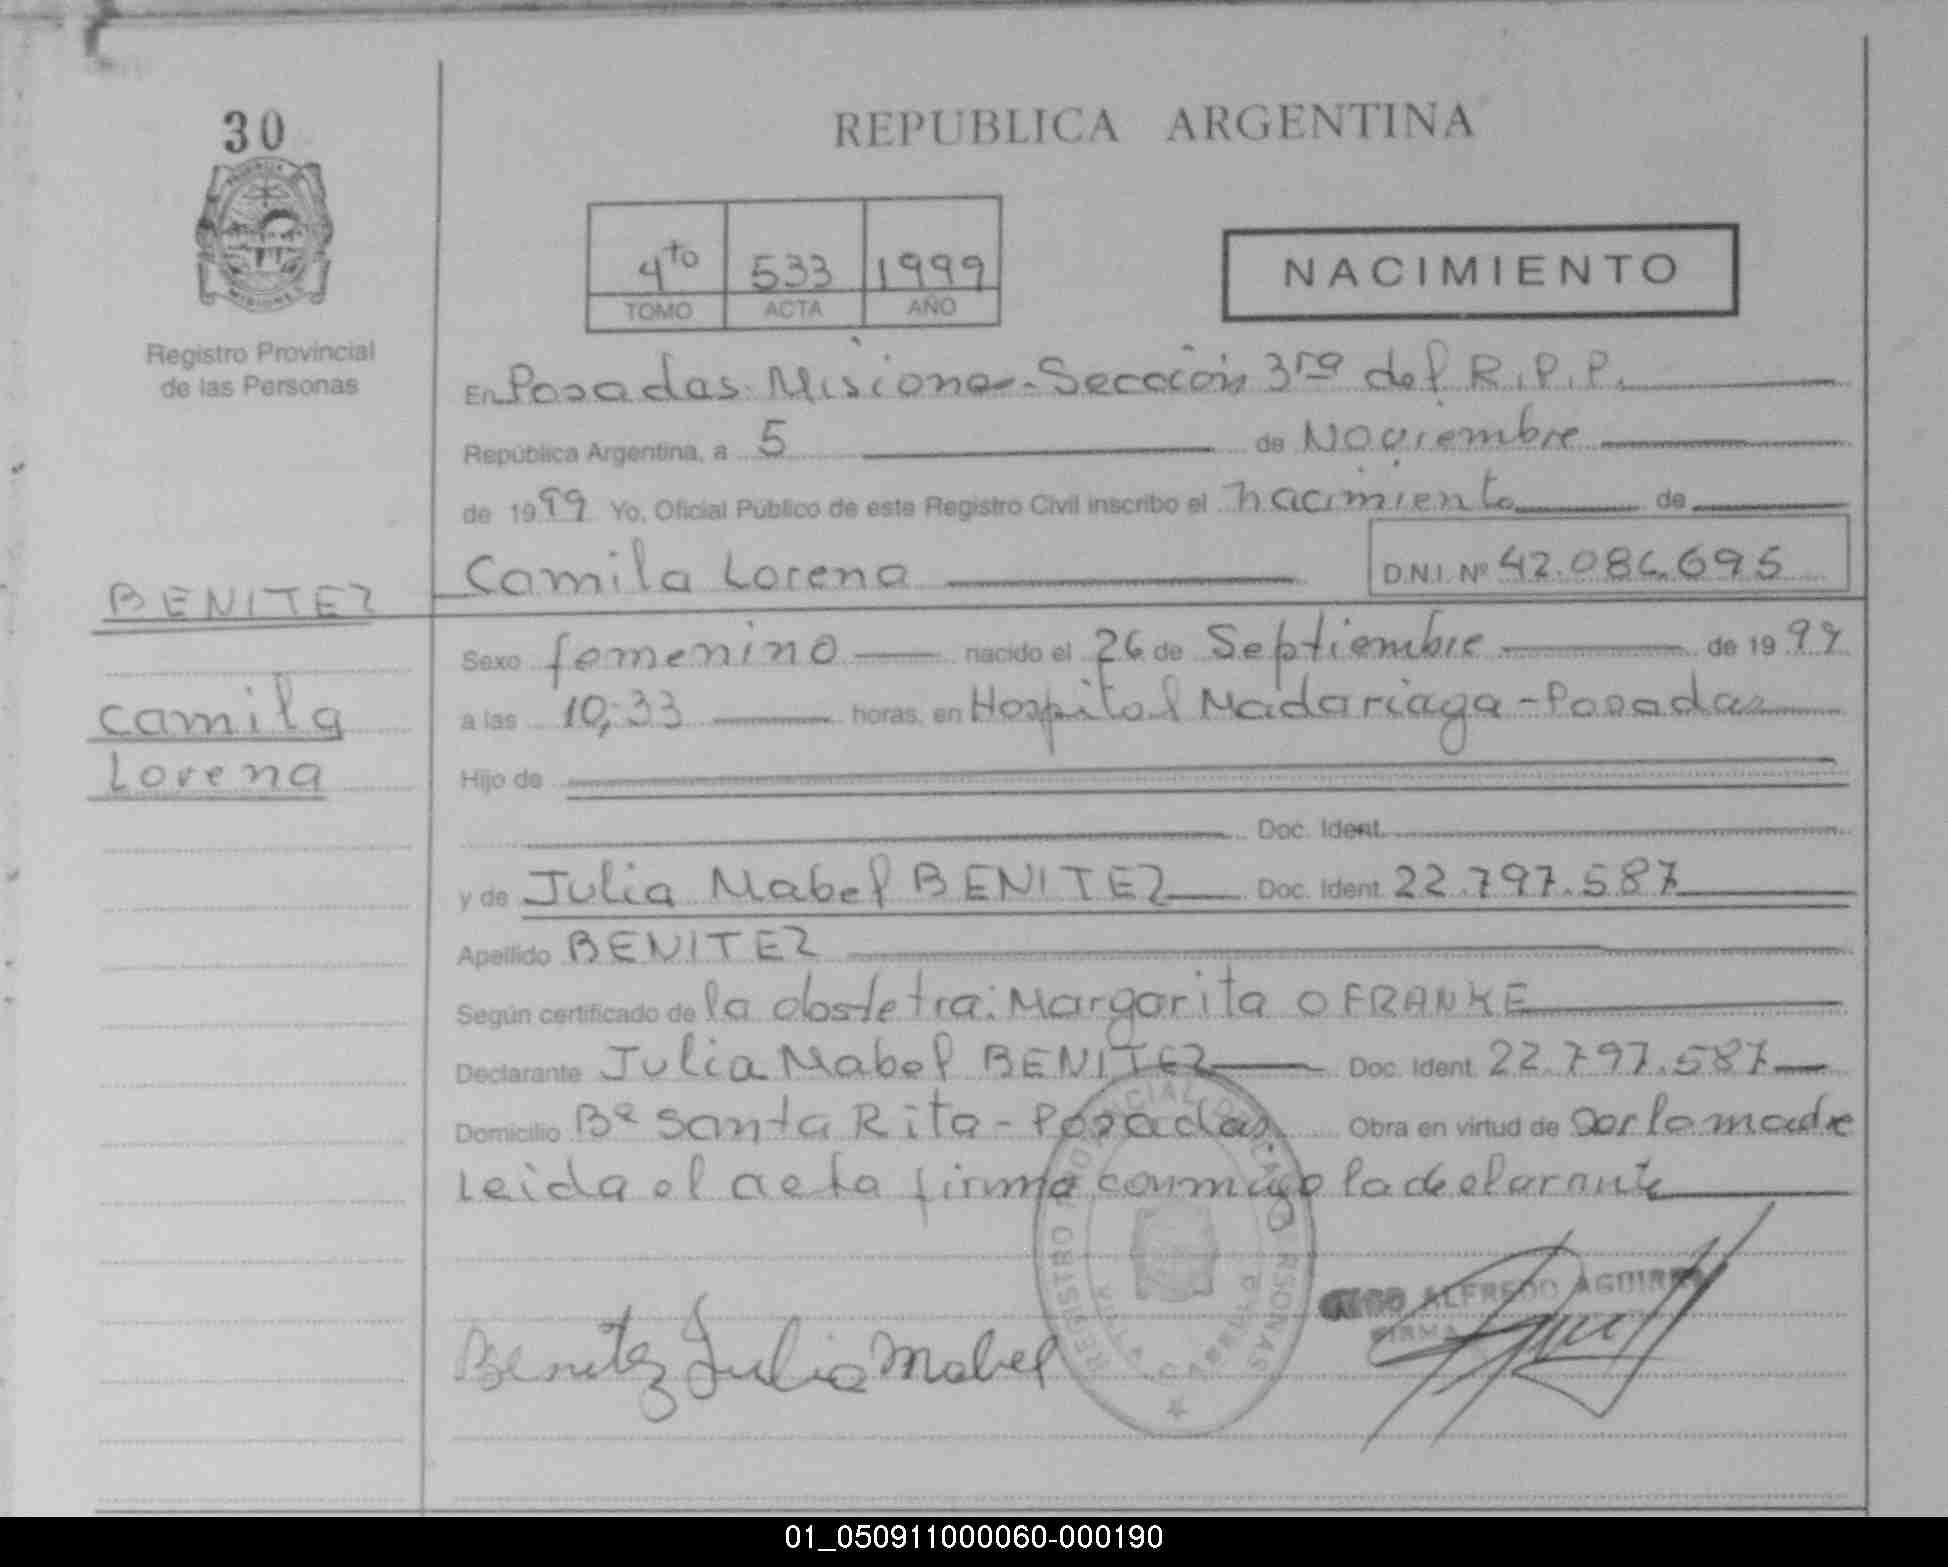 30
REPUBLICA ARGENTINA
4to 533 1999
TOMO ACTA AÑO
NACIMIENTO
Registro Provincial
de las Personas
En Posadas Misiones - Sección 3ra del R.P.P.
República Argentina, a 5 de Noviembre
de 1999 Yo, Oficial Público de este Registro Civil inscribo el nacimiento de
Camila Lorena D.N.I. Nº 42.086.695
BENITEZ
Camila
Lorena
Sexo femenino nacido el 26 de Septiembre de 1999
a las 10:33 horas, en Hospital Madariaga - Posadas
Hijo de
Doc. Ident.
y de Julia Mabel BENITEZ Doc. Ident. 22.797.587
Apellido BENITEZ
Según certificado de la obstetra: Margarita O FRANKE
Declarante Julia Mabel BENITEZ Doc. Ident. 22.797.587
Domicilio Bº Santa Rita - Posadas Obra en virtud de ser la madre
Leida el acta firma conmigo la declarante
REGISTRO PROVINCIAL DE LAS PERSONAS
ALFREDO AGUIRRE
FIRMA
Benitez Julia Mabel
01_050911000060-000190